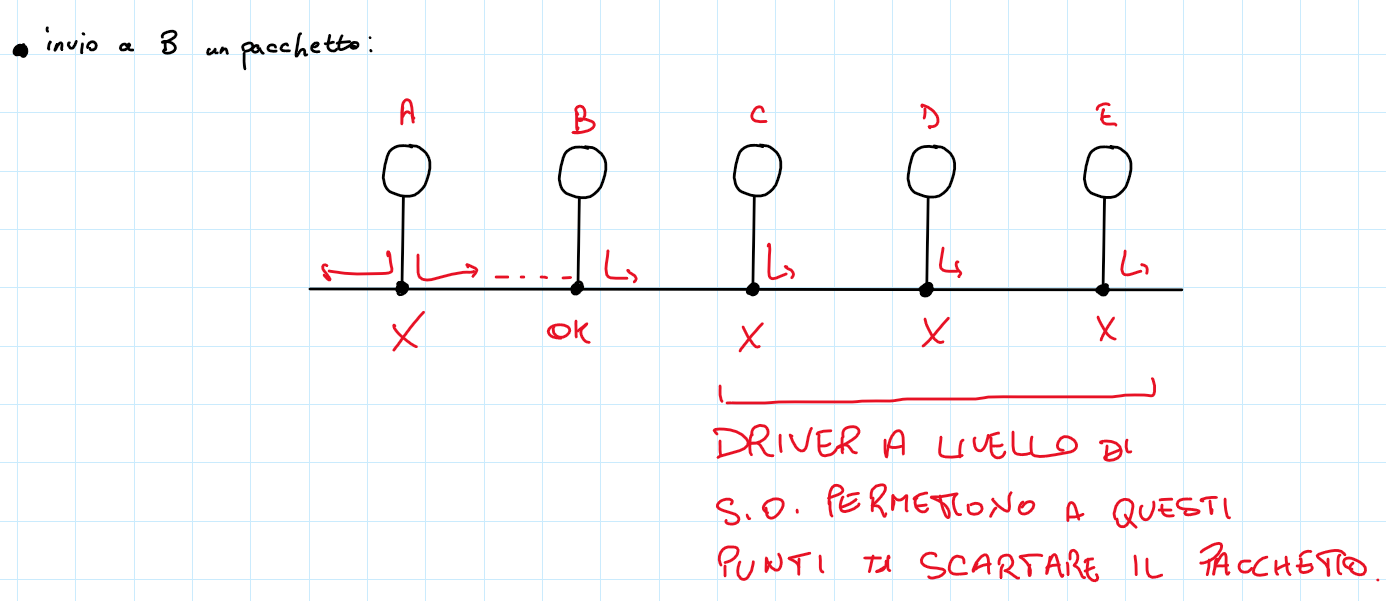 invio a B un pacchetto:
A B C D E
X OK X X X
DRIVER A LIVELLO DI
S.O. PERMETTONO A QUESTI
PUNTI DI SCARTARE IL PACCHETTO.